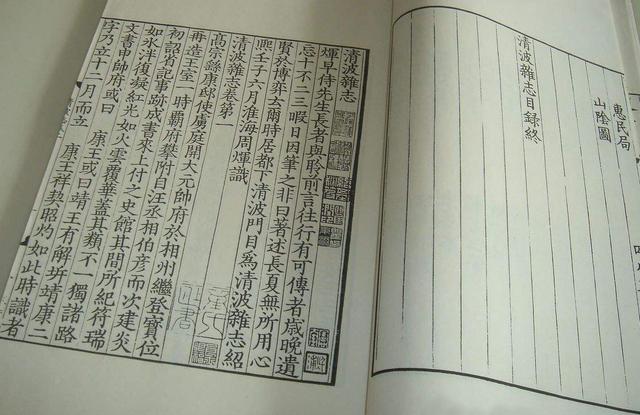 惠民局
山陰圖
清波雜志目録終
清波雜志
煇早侍先生長者與聆前言往行有可傳者歲晚遺
忘十不二三暇日因筆之非曰著述長夏無所用心
賢於博弈云爾時居都下清波門目爲清波雜志紹
熙壬子六月淮海周煇識
清波雜志卷第一
髙宗繇康邸使虜庭開大元帥府於相州繼登寳位
再造王室一時霸府攀附自汪丞相伯彦而次建炎
初詔省記事跡成書來上付之史館其間所紀符瑞
如氷泮復凝紅光如火雲覆華蓋其類不一獨諸路
文書申帥府或曰 康王或曰靖王有解拆靖康二
字乃立十二月而立 康王祥契昭灼如此時識者